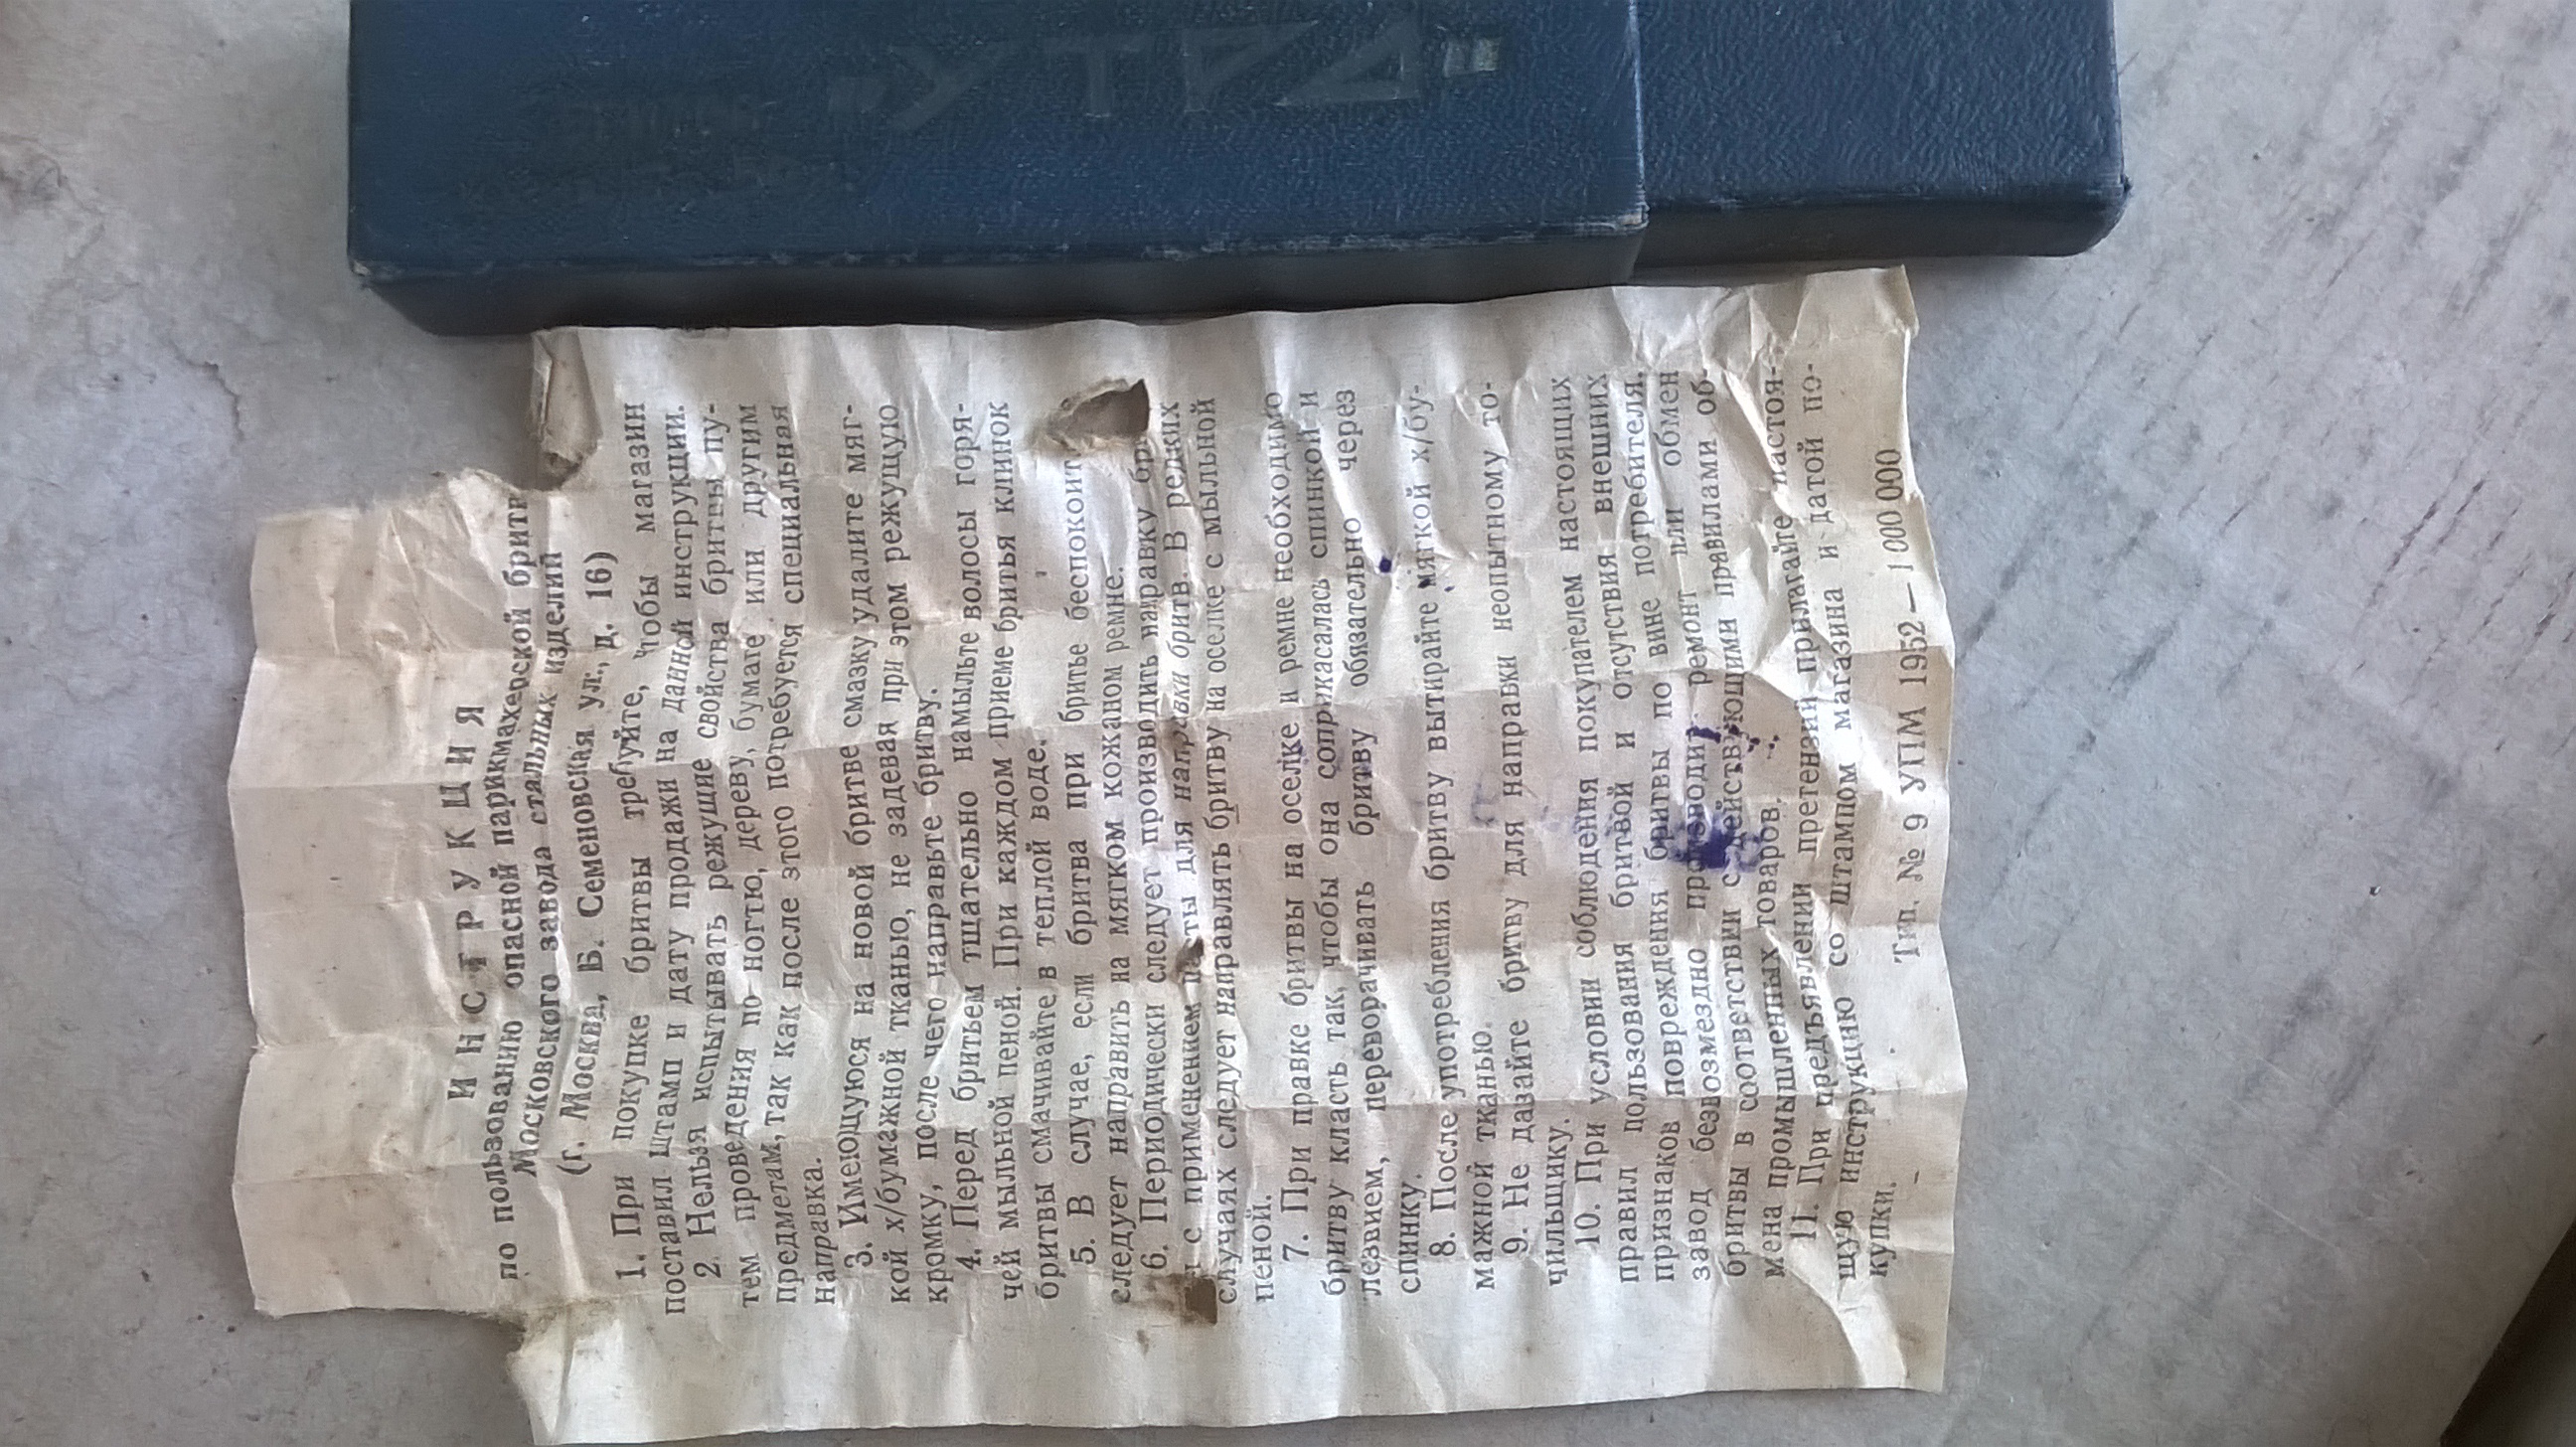 ИНСТРУКЦИЯ
по пользованию опасной парикмахерской бритв
Московского завода стальных изделий
(г. Москва, Б. Семеновская ул., д. 16)
1. При покупке бритвы требуйте, чтобы магазин
поставил штамп и дату продажи на данной инструкции.
2. Нельзя испытывать режущие свойства бритвы пу-
тем проведения по ногтю, дереву, бумаге или другим
предметам, так как после этого потребуется специальная
направка.
3. Имеющуюся на новой бритве смазку удалите мяг-
кой х/бумажной тканью, не задевая при этом режущую
кромку, после чего направьте бритву.
4. Перед бритьем тщательно намыльте волосы горя-
чей мыльной пеной. При каждом приеме бритья клинок
бритвы смачивайте в теплой воде.
5. В случае, если бритва при бритье беспокоит
следует направить на мягком кожаном ремне.
6. Периодически следует производить направку бр
с применением пасты для направки бритв. В редких
случаях следует направлять бритву на оселке с мыльной
пеной.
7. При правке бритвы на оселке и ремне необходимо
бритву класть так, чтобы она соприкасалась спинкой и
лезвием, переворачивать бритву обязательно через
спинку.
8. После употребления бритву вытирайте мягкой х/бу-
мажной тканью.
9. Не давайте бритву для направки неопытному то-
чильщику.
10. При условии соблюдения покупателем настоящих
правил пользования бритвой и отсутствия внешних
признаков повреждения бритвы по вине потребителя,
завод безвозмездно производит ремонт или обмен
бритвы в соответствии с действующими правилами об-
мена промышленных товаров.
11. При предъявлении претензий прилагайте настоя-
щую инструкцию со штампом магазина и датой по-
купки.
Тип. № 9 УПМ 1952 — 1 000 000